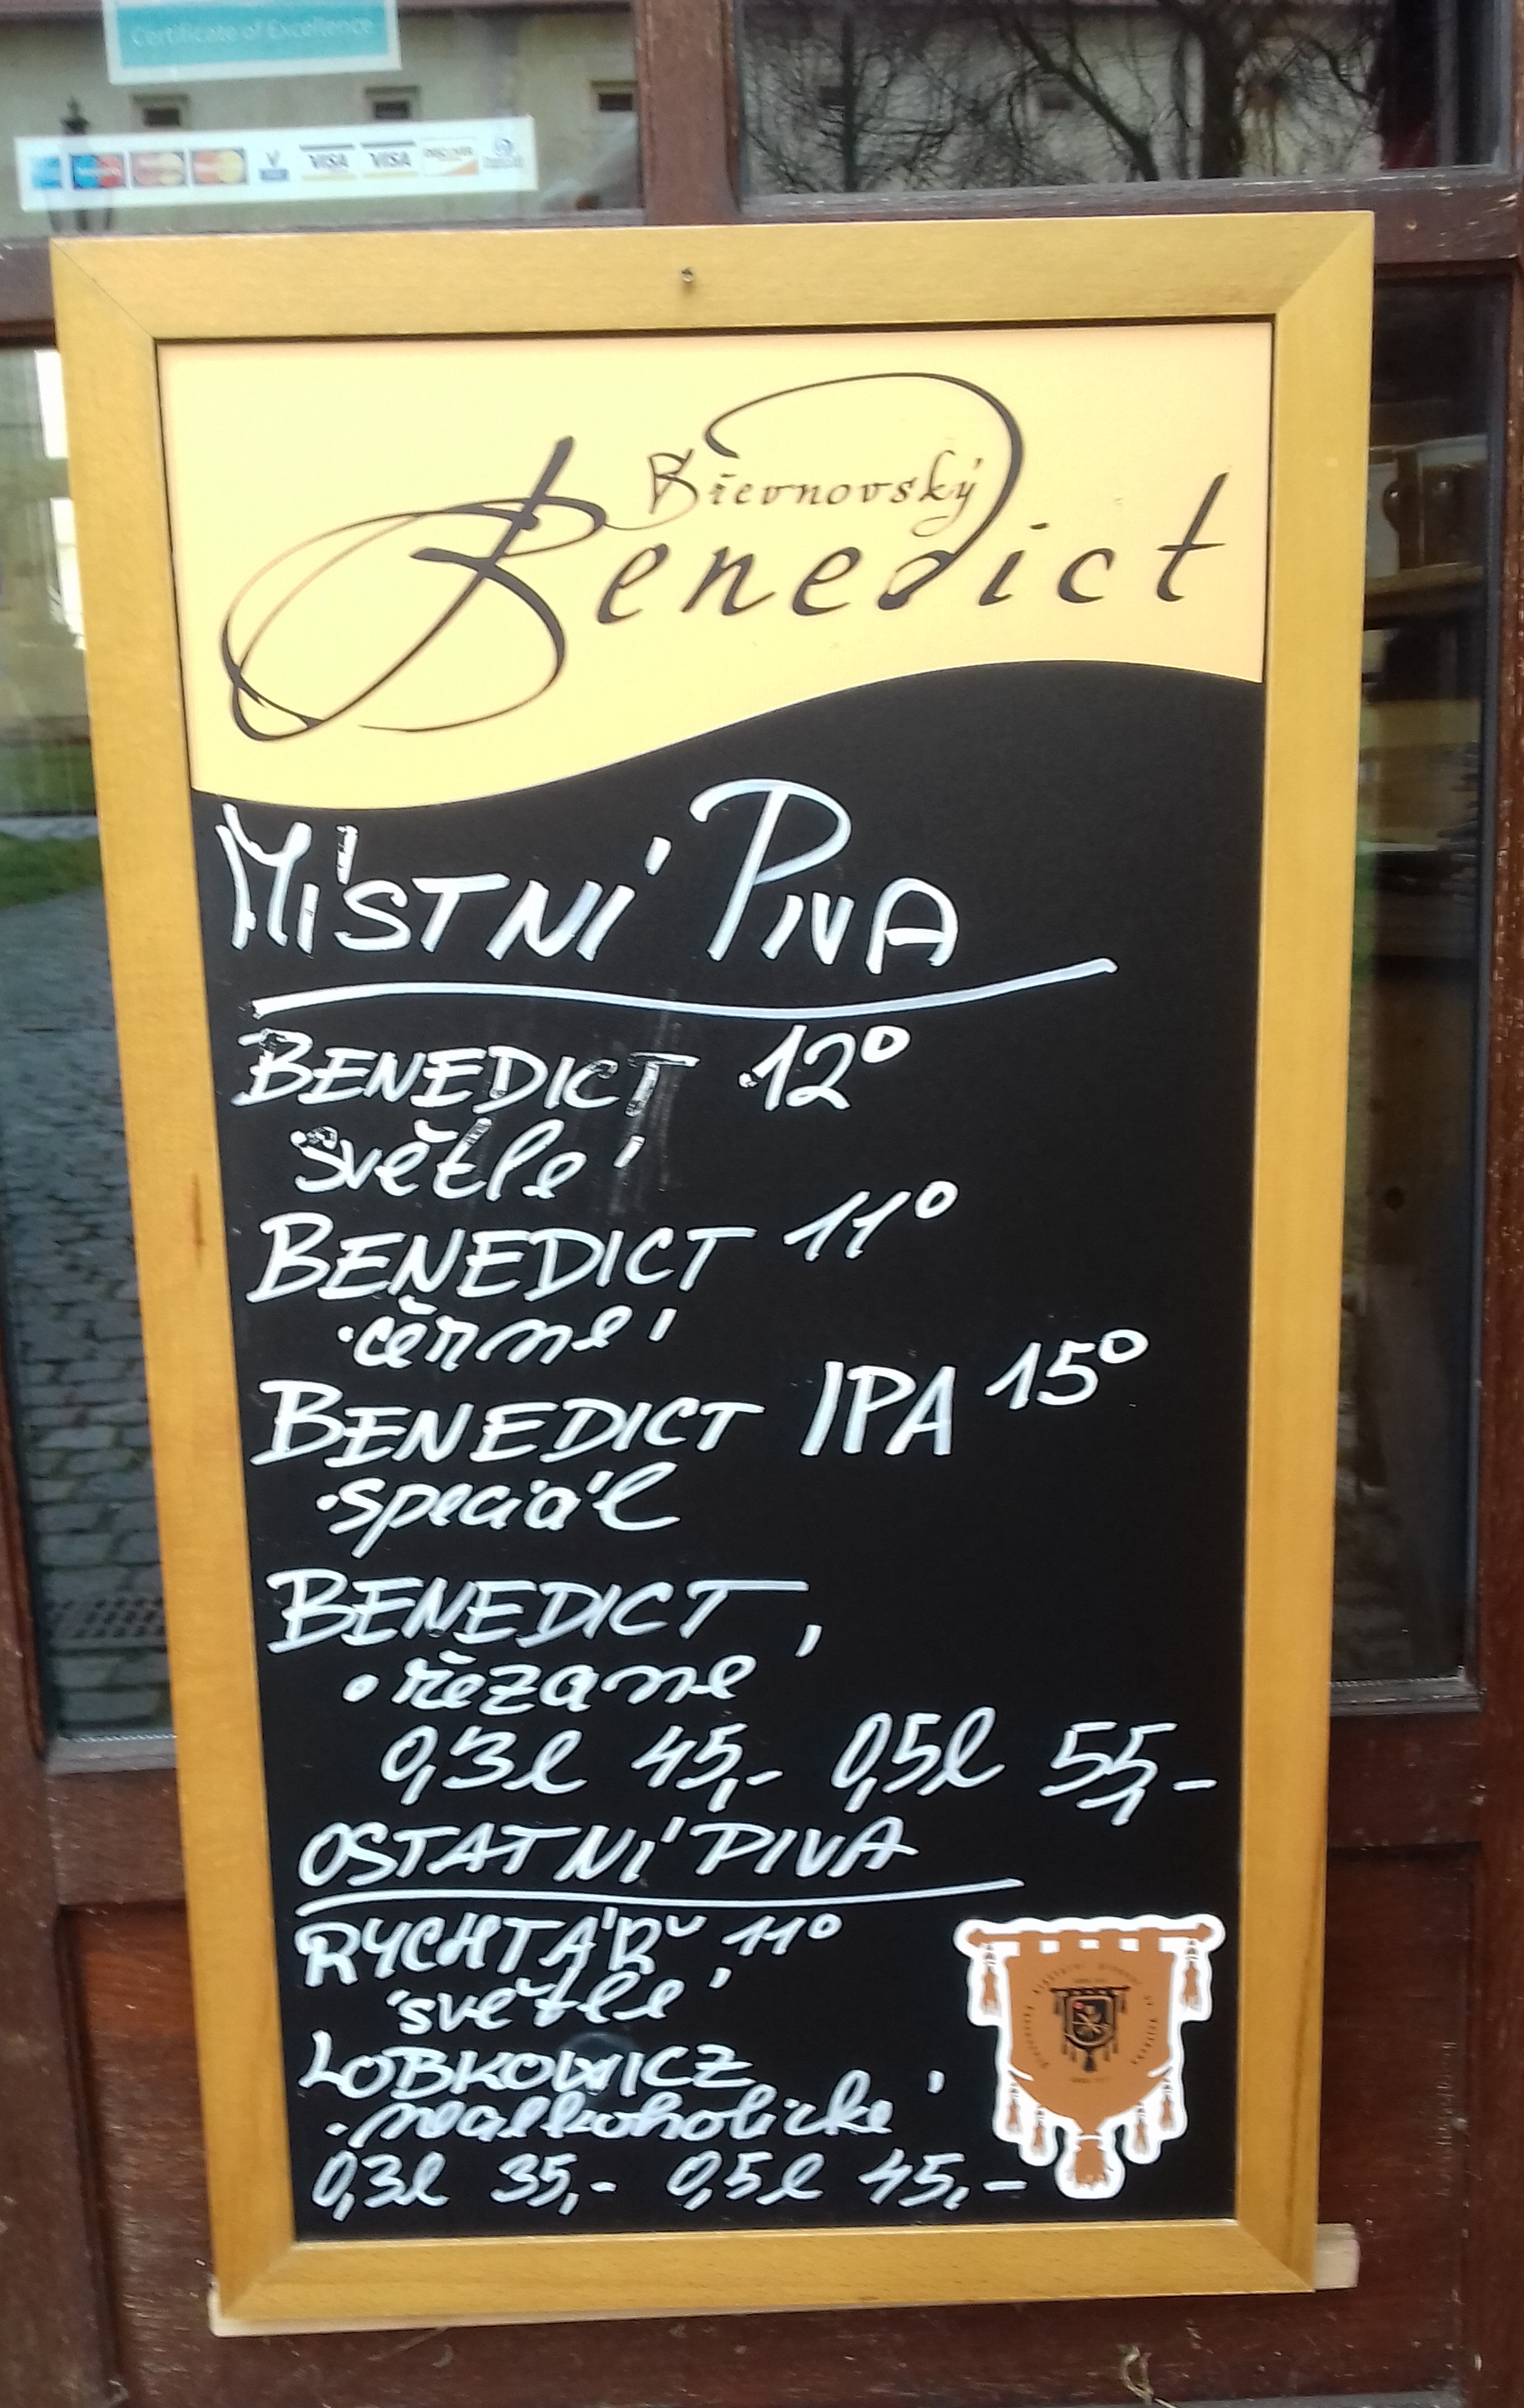 Certificate of Excellence
VISA VISA DISCOVER
Břevnovský
Benedict
MÍSTNÍ PIVA
BENEDICT 12°
světlé
BENEDICT 11°
·černé
BENEDICT IPA 15°
·speciál
BENEDICT
·řezané
0,3l 45,- 0,5l 55,-
OSTATNÍ PIVA
RYCHTÁŘ 11°
·světlé
LOBKOWICZ
·nealkoholické
0,3l 35,- 0,5l 45,-